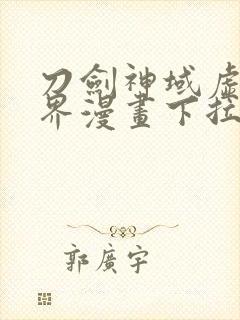 刀劍神域虛
界漫畫下拉
郭廣宇